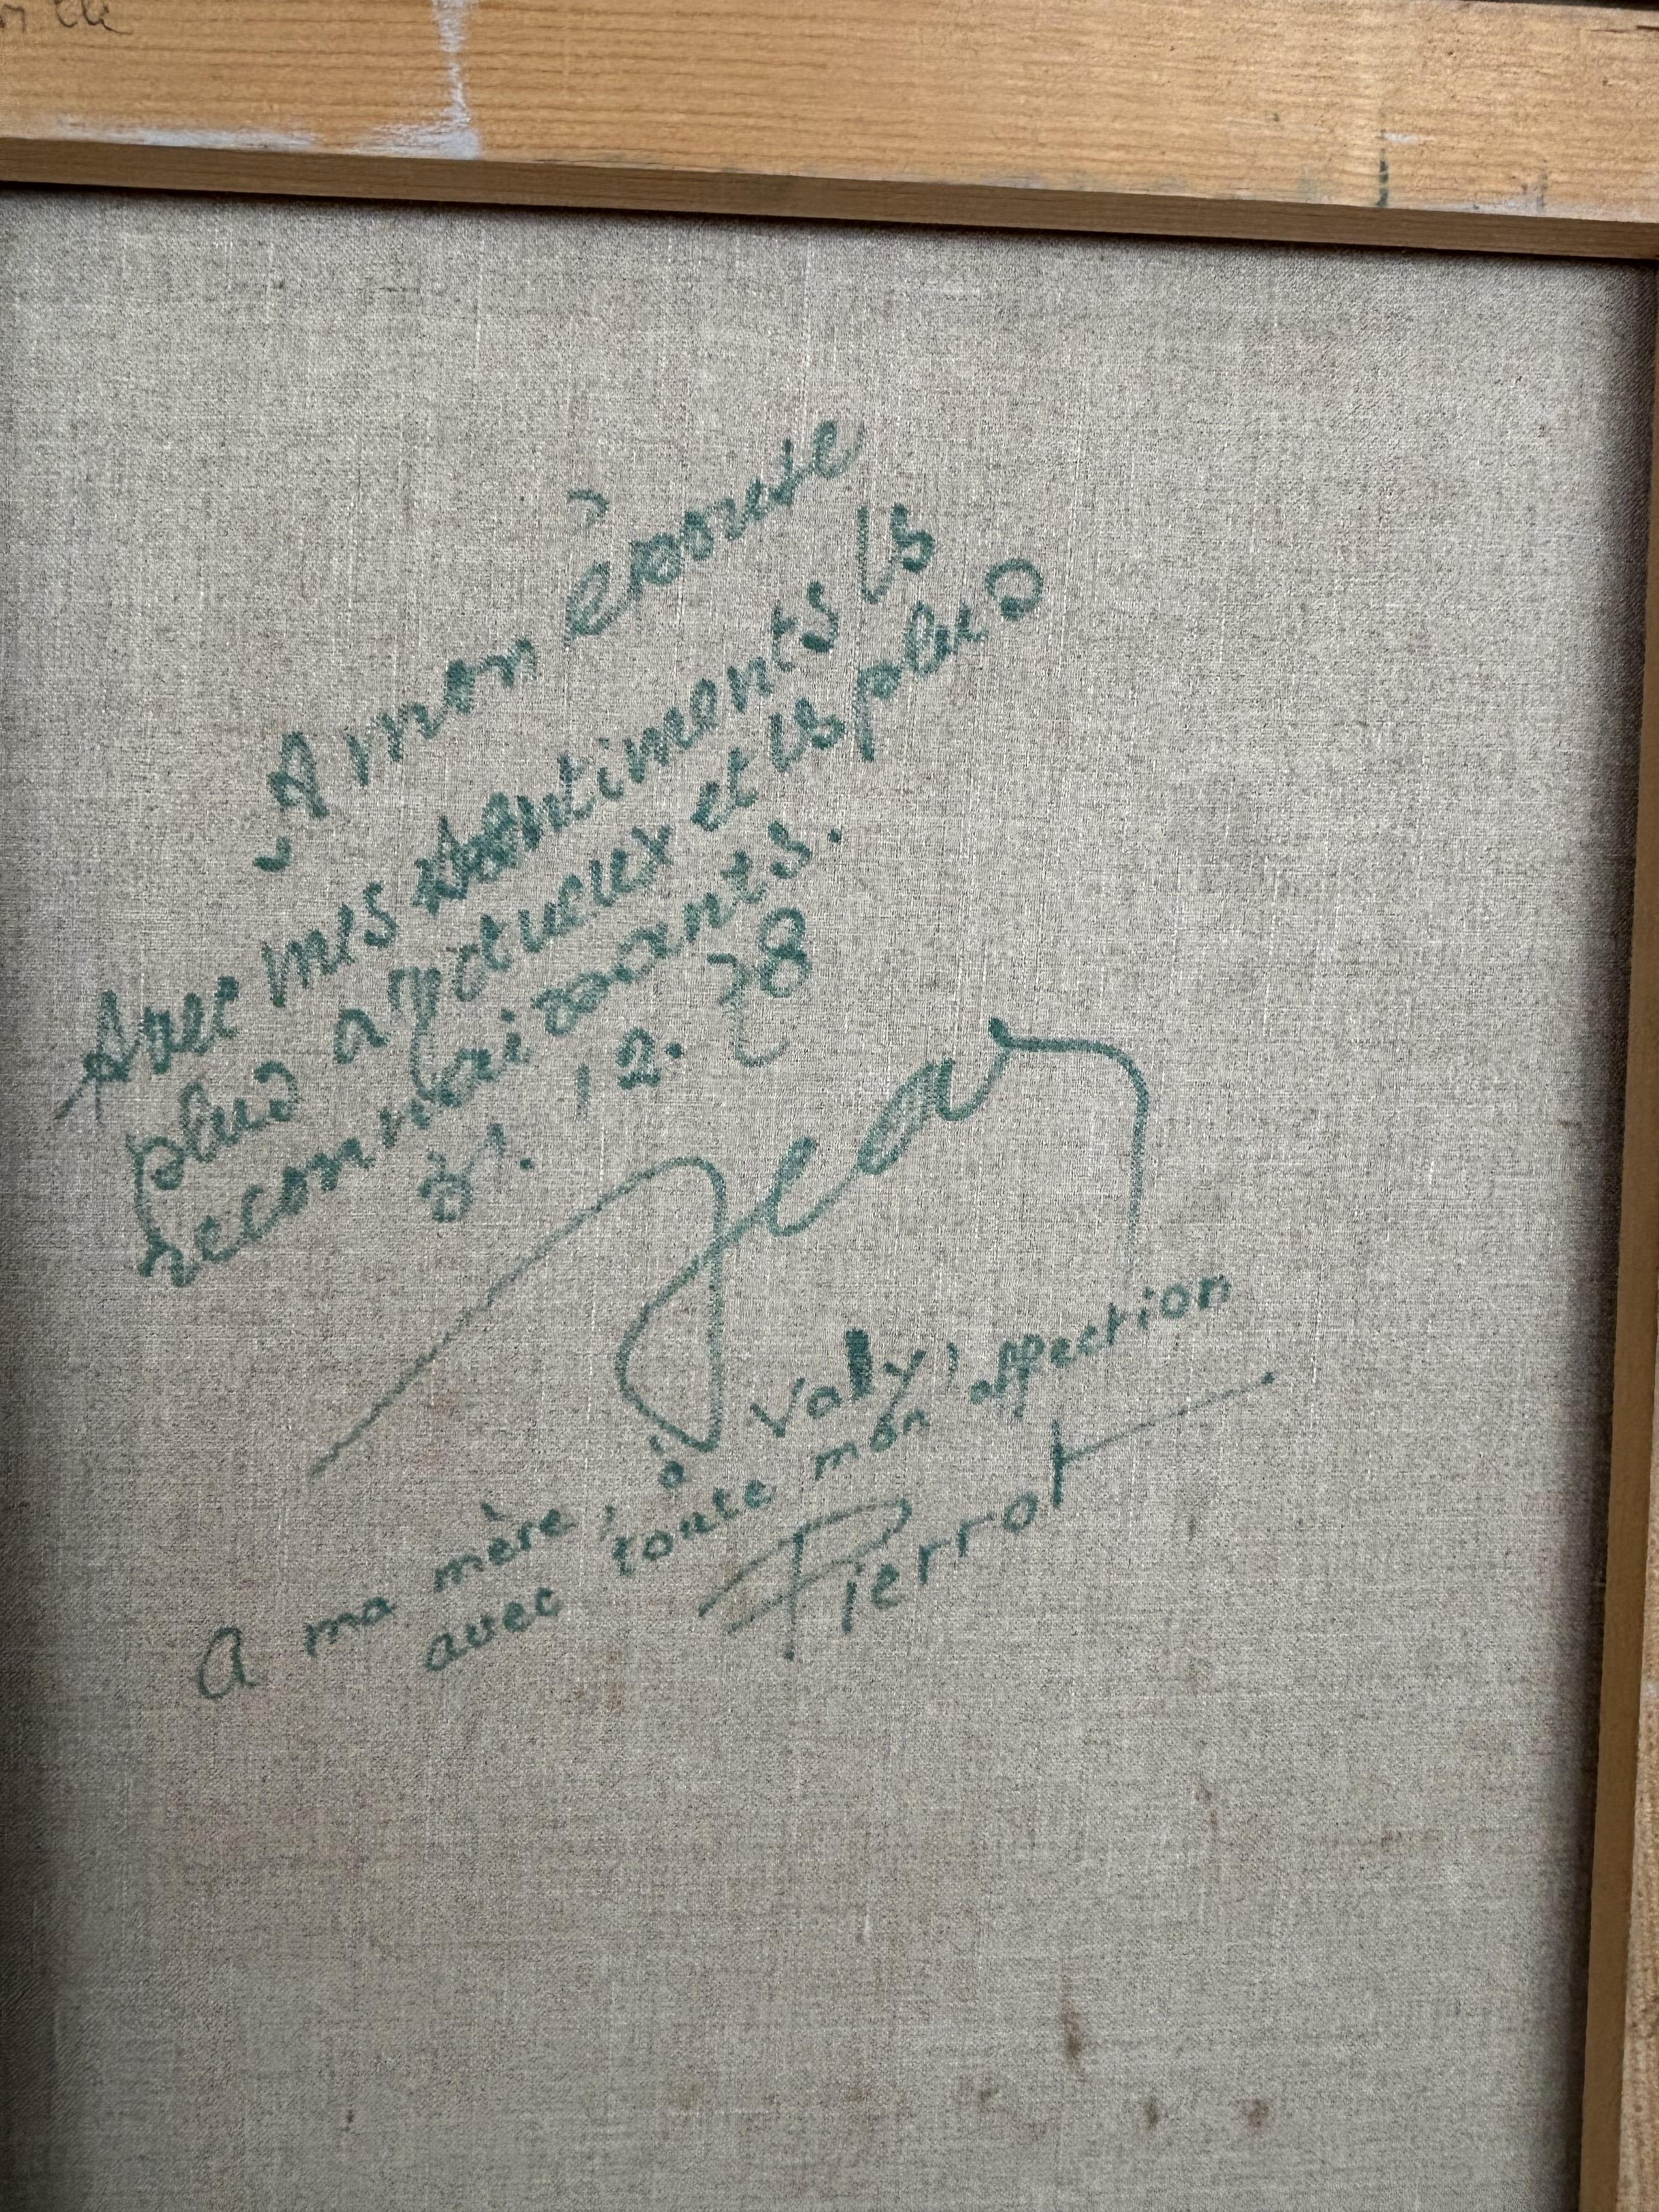 A mon épouse
Avec mes sentiments ls
plus affectueux et ls plus
reconnaissants.
12. 78
Jean
A ma mère, à Valy,
avec toute mon affection
Pierrot